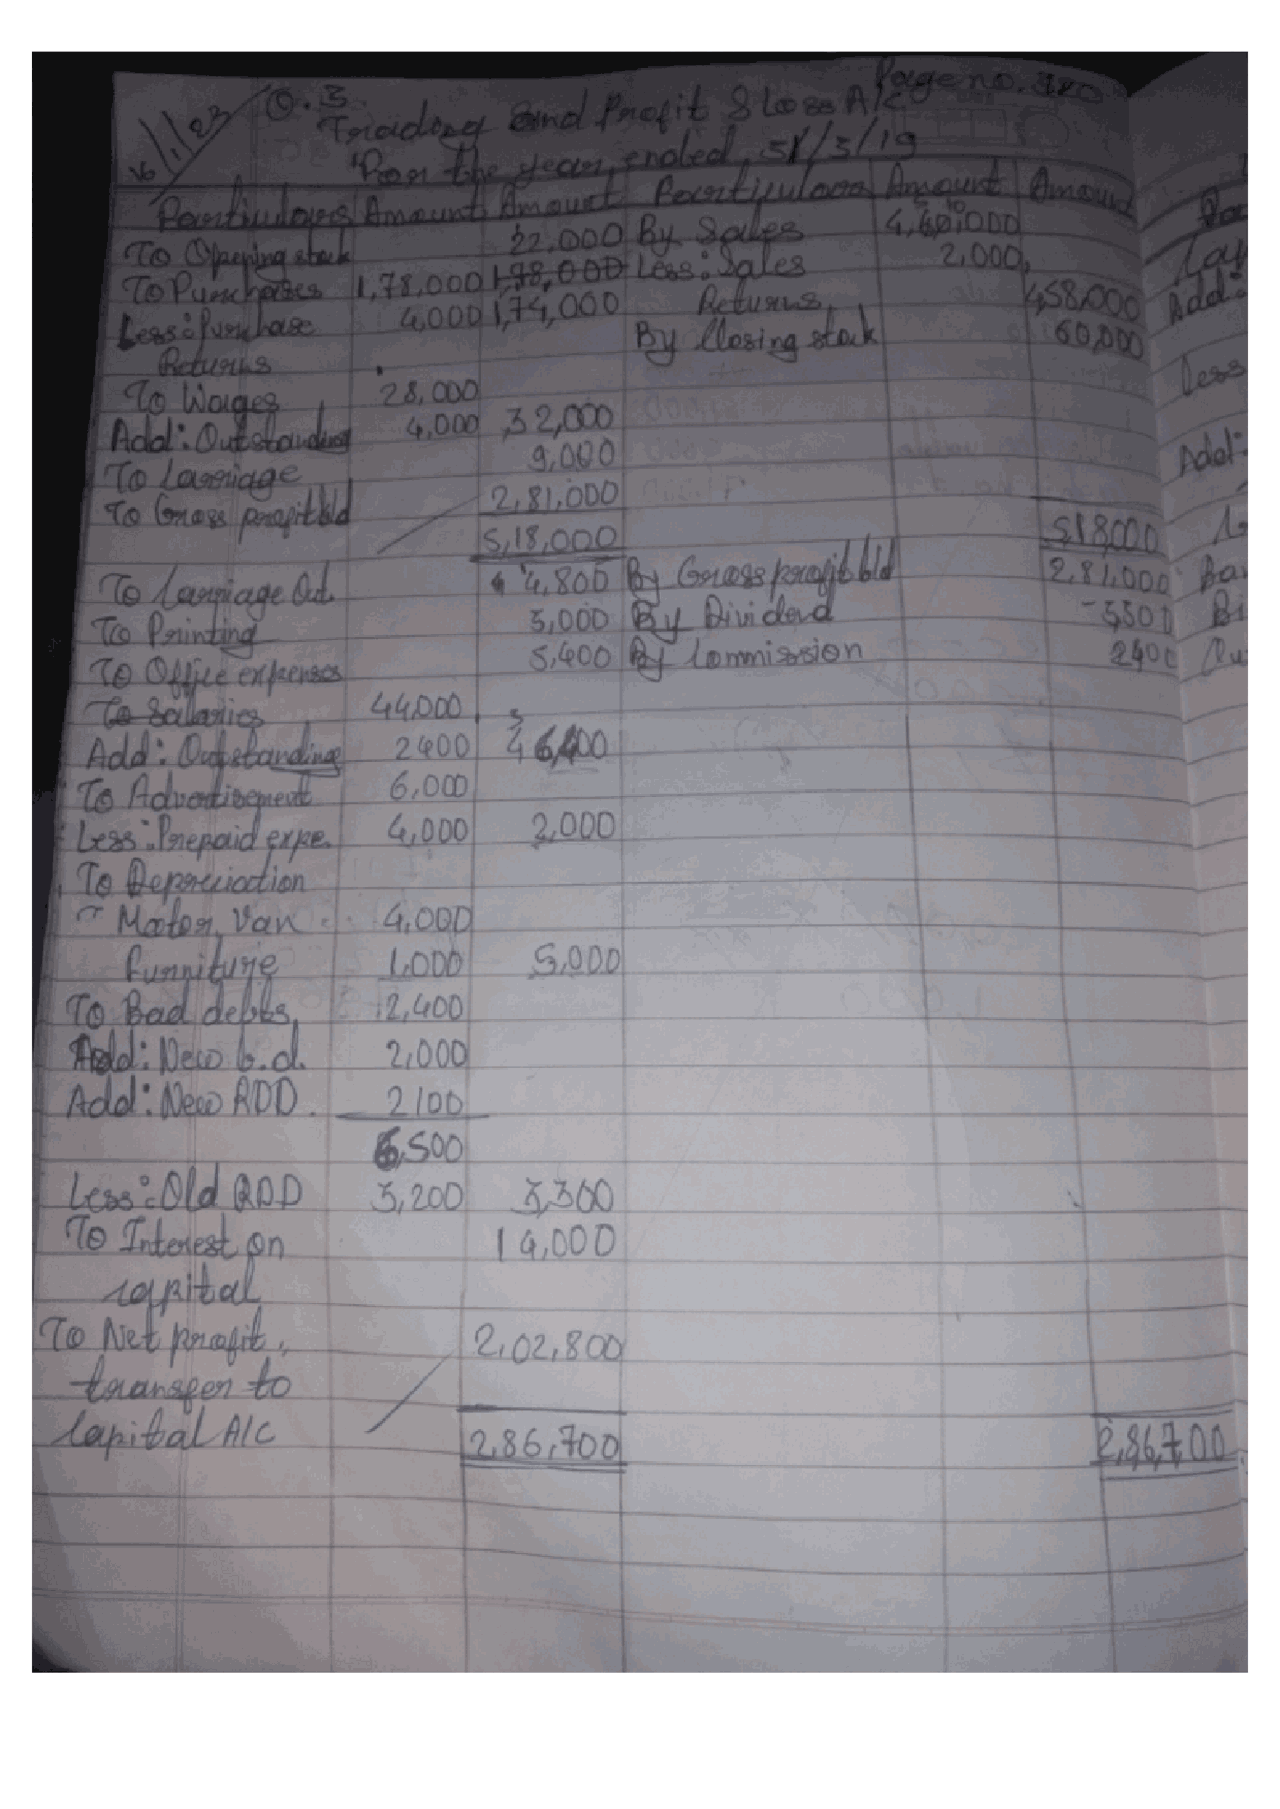 Page no. 980
16/1/23 Q.3.
Trading and Profit & Loss A/C
For the year ended, 31/3/19
Particulars Amount Amount Particulars Amount Amount
To Opening stock 22,000 By Sales 4,60,000
To Purchases 1,78,000 1,78,000 Less: Sales 2,000
Less: Purchase 4,000 1,74,000 Returns 4,58,000
Returns By Closing stock 60,000
To Wages 28,000
Add: Outstanding 4,000 32,000
To Carriage 9,000
To Gross profit b/d 2,81,000
5,18,000 518,000
To Carriage Out. 4,800 By Gross profit b/d 2,81,000
To Printing 3,000 By Dividend 3,300
To Office expenses 5,400 By Commission 2400
To Salaries 44,000
Add: Outstanding 2400 46,400
To Advertisement 6,000
Less: Prepaid expe. 4,000 2,000
To Depreciation
Motor Van 4,000
Furniture 1,000 5,000
To Bad debts, 2,400
Add: New b.d. 2,000
Add: New RDD. 2100
6,500
Less: Old RDD 3,200 3,300
To Interest on 14,000
capital
To Net profit, 2,02,800
transfer to
Capital A/C 2,86,700 2,86,700